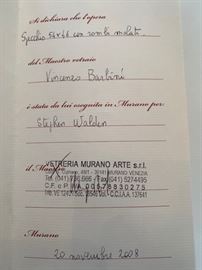 Si dichiara che l'opera
Specchio 58x68 con rombi molati
del Maestro vetraio
Vincenzo Barbini
è stata da lui eseguita in Murano per:
Stephen Walden
il Maestro
VETRERIA MURANO ARTE s.r.l.
30141 MURANO VENEZIA
Tel. (041) 736.566 Fax (041) 5274495
C.F. e P. IVA 00578830275
C.C.I.A.A. 137641
Murano
20 novembre 2008